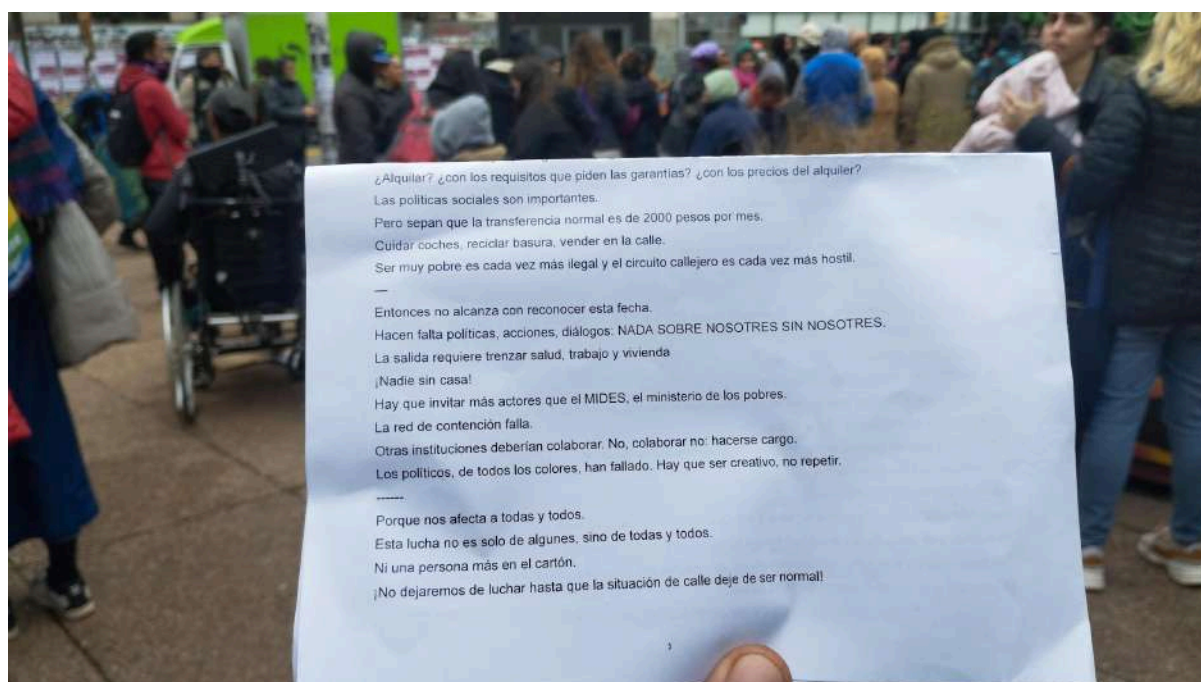 ¿Alquilar? ¿con los requisitos que piden las garantías? ¿con los precios del alquiler?
Las políticas sociales son importantes.
Pero sepan que la transferencia normal es de 2000 pesos por mes.
Cuidar coches, reciclar basura, vender en la calle.
Ser muy pobre es cada vez más ilegal y el circuito callejero es cada vez más hostil.
—
Entonces no alcanza con reconocer esta fecha.
Hacen falta políticas, acciones, diálogos: NADA SOBRE NOSOTRES SIN NOSOTRES.
La salida requiere trenzar salud, trabajo y vivienda
¡Nadie sin casa!
Hay que invitar más actores que el MIDES, el ministerio de los pobres.
La red de contención falla.
Otras instituciones deberían colaborar. No, colaborar no: hacerse cargo.
Los políticos, de todos los colores, han fallado. Hay que ser creativo, no repetir.
------
Porque nos afecta a todas y todos.
Esta lucha no es solo de algunes, sino de todas y todos.
Ni una persona más en el cartón.
¡No dejaremos de luchar hasta que la situación de calle deje de ser normal!
3